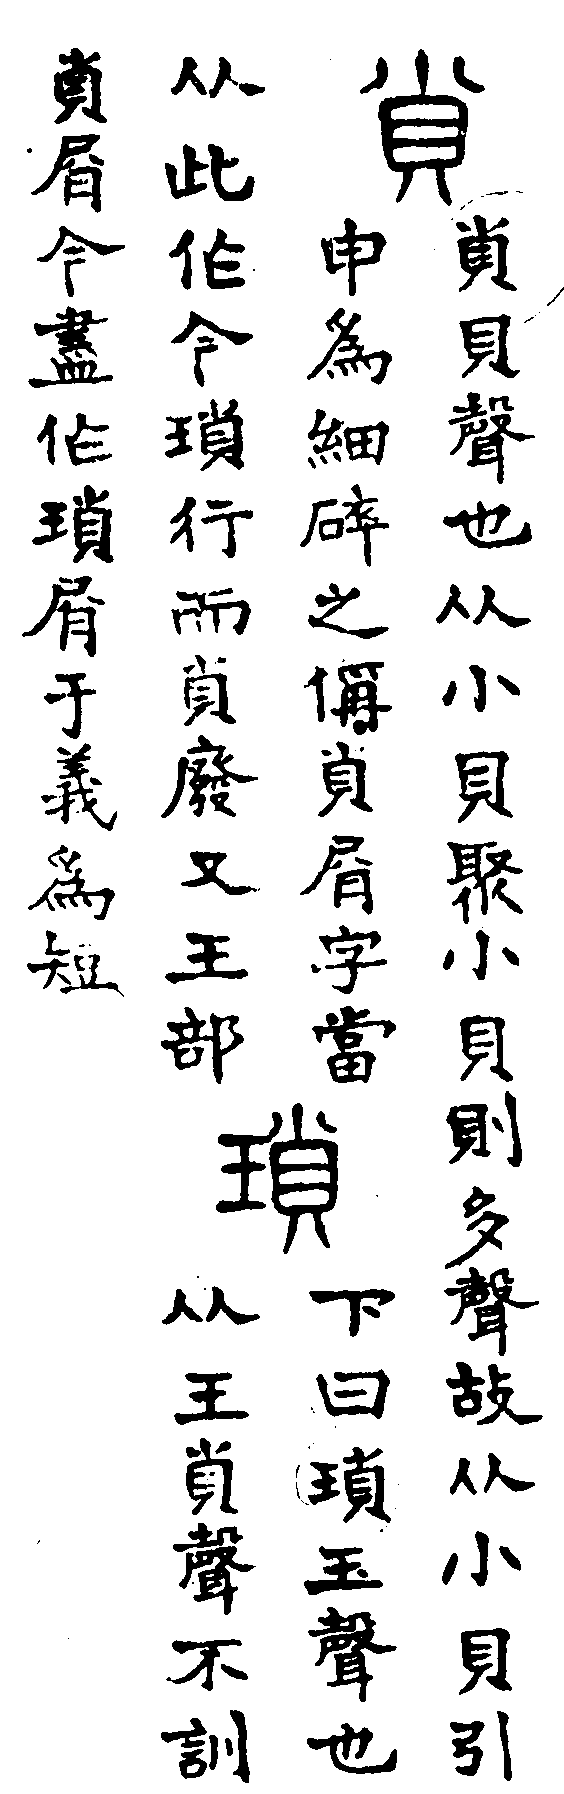 𧴪
𧴪貝聲也从小貝聚小貝則多聲故从小貝引
申為細碎之偁𧴪屑字當
从此作今瑣行而𧴪廢又王部
瑣
下曰瑣玉聲也
从王𧴪聲不訓
𧴪屑今盡作瑣屑于義為短